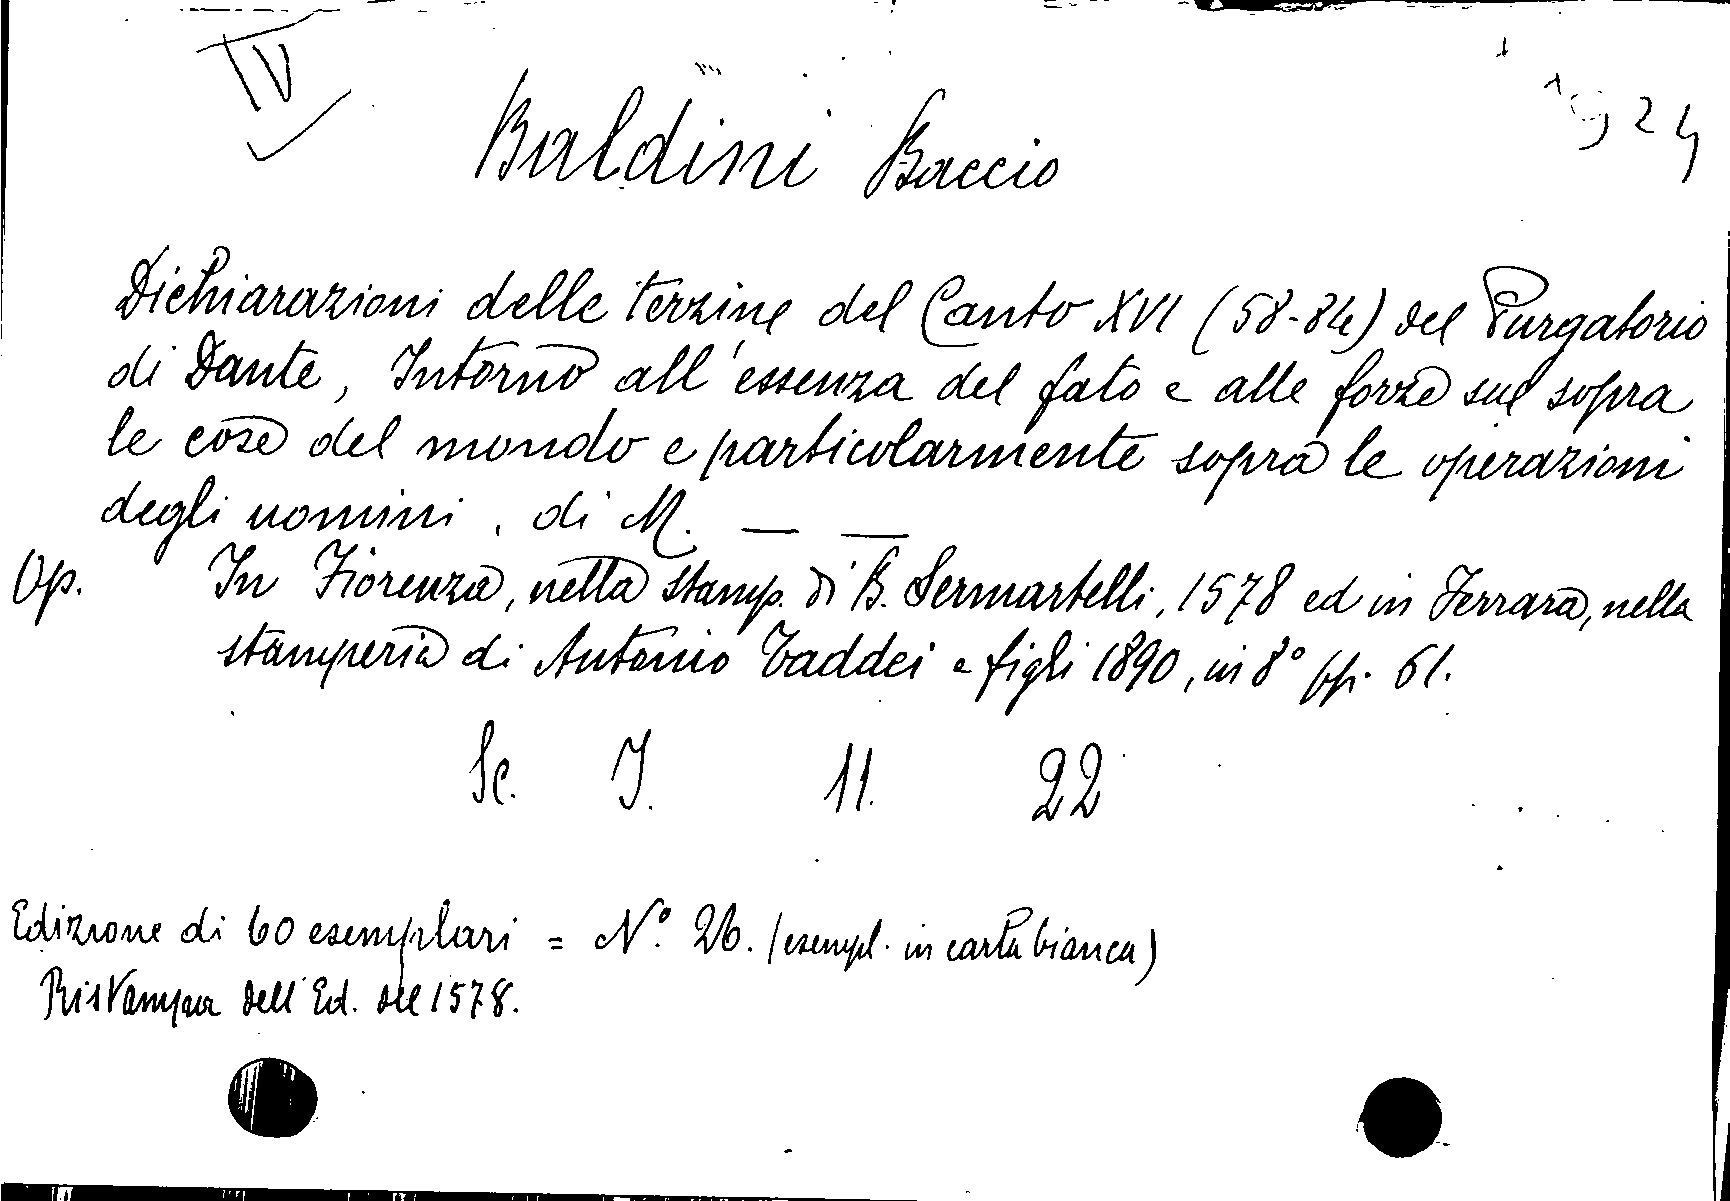 IV
24
Baldini Baccio
Dichiarazioni delle terzine del Canto XVI (58-84) del Purgatorio
di Dante, Intorno all'essenza del fato e alle forze sue sopra
le cose del mondo e particolarmente sopra le operazioni
degli uomini, di M. — —
Op. In Fiorenza, nella stamp. di B. Sermartelli, 1578 ed in Ferrara, nella
stamperia di Antonio Taddei e figli 1890, in 8° pp. 61.
Sc. I. 11. 22
Edizione di 60 esemplari = N.° 26. (esempl. in carta bianca)
Ristampa dell'Ed. del 1578.